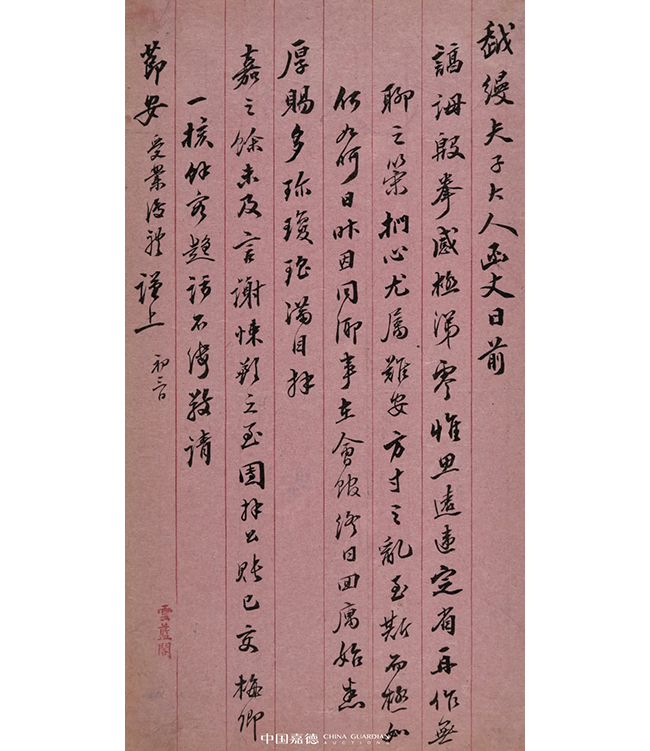 越縵夫子大人函丈日前
謁誨殷拳感極涕零惟思遠違定省再作無
聊之榮捫心尤屬難安方寸之亂至斯而極如
何如何日昨因同鄉事在會館終日回寓始悉
厚賜多珍瓊瑤滿目拜
嘉之餘未及言謝悚歉之至團拜公賬已交梅卿
一核餘容趨訪不備敬請
節安 受業謹上 初三日
雲藍閣
中国嘉德 CHINA GUARDIAN AUCTIONS